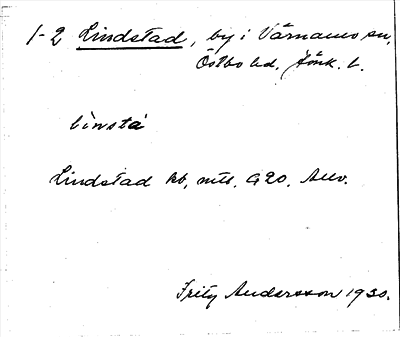 1-2 Lindstad, by i Värnamo sn,
Östbo hd, Jönk. l.
lìnsta
Lindstad kb, mtl, G20, Auv.
Fritz Andersson 1930.